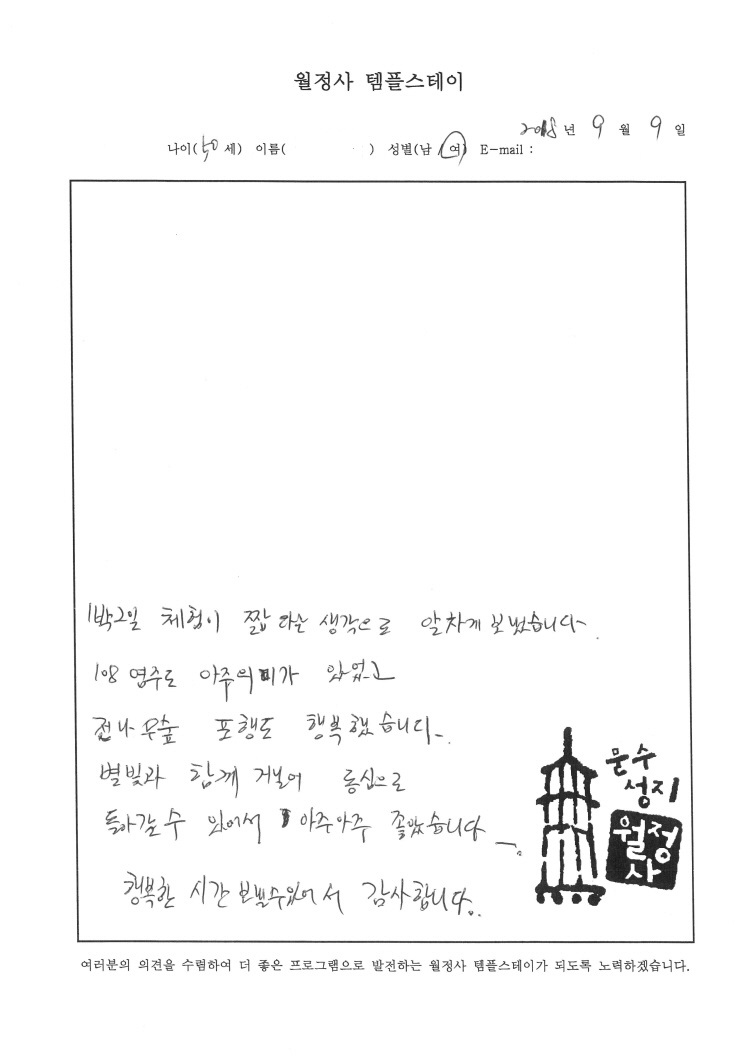 월정사 템플스테이
2018년 9월 9일
나이(50세) 이름( ) 성별(남/여) E-mail :
1박2일 체험이 짧다는 생각으로 알차게 보냈습니다.
108 염주도 아주 의미가 있었고
전나무숲 포행도 행복했습니다.
별빛과 함께 거닐며 동심으로
돌아갈 수 있어서 아주아주 좋았습니다.
행복한 시간 보낼수있어서 감사합니다.
문수
성지
월정
사
여러분의 의견을 수렴하여 더 좋은 프로그램으로 발전하는 월정사 템플스테이가 되도록 노력하겠습니다.